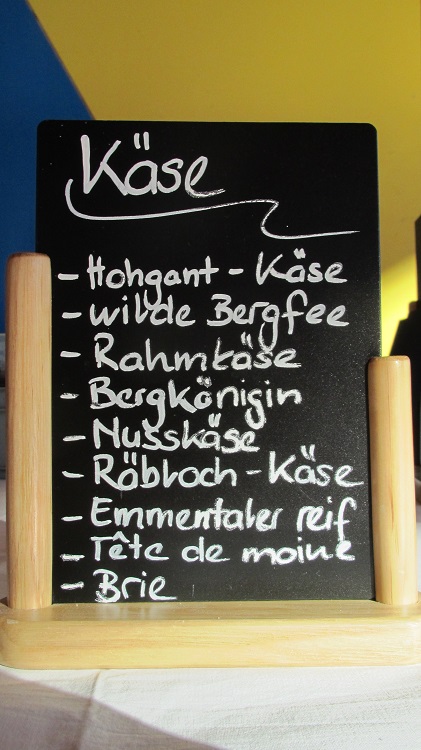 Käse
- Hohgant - Käse
- wilde Bergfee
- Rahmkäse
- Bergkönigin
- Nusskäse
- Röbloch - Käse
- Emmentaler reif
- Tête de moine
- Brie